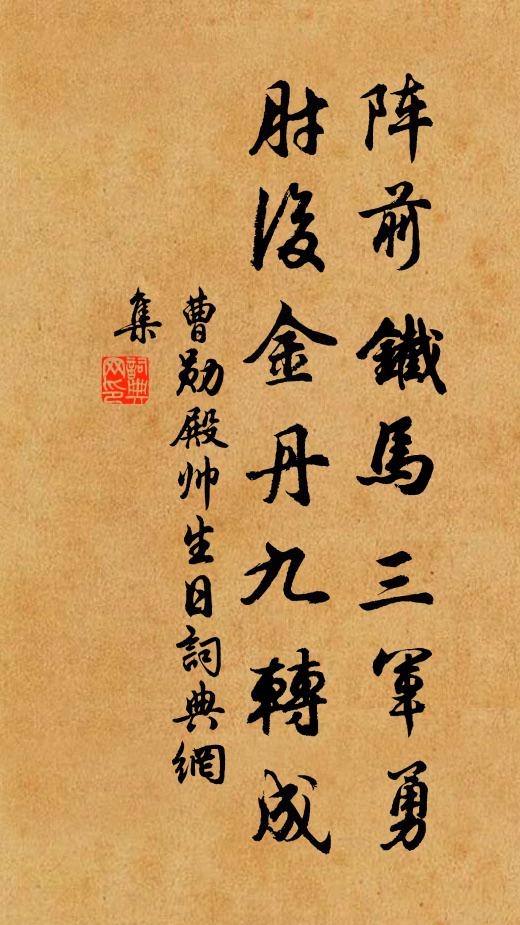 阵前鐵馬三軍勇
肘後金丹九轉成
曹勋殿帅生日詞典網
集
詞典
网印